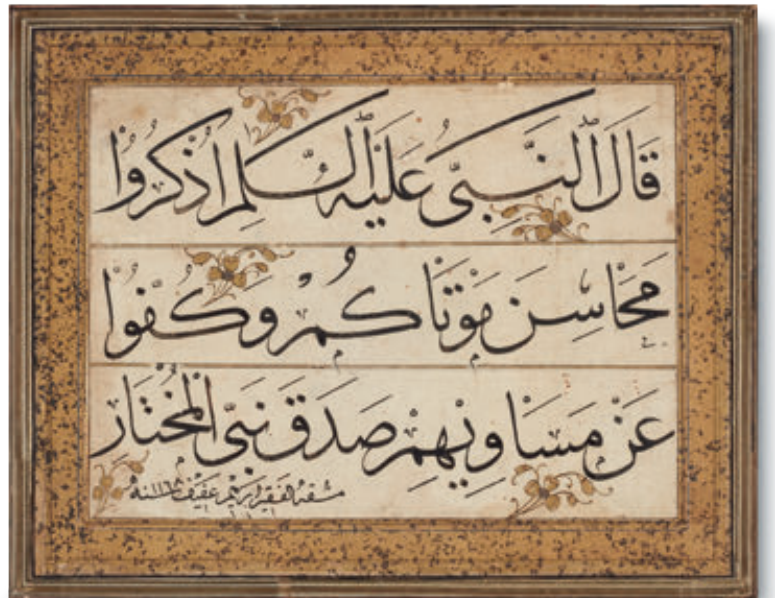 قَالَ النَّبِيُّ عَلَيْهِ السَّلٰم اُذْكُرُوا
مَحَاسِنَ مَوْتَاكُمْ وَكُفُّوا
عَنْ مَسَاوِيهِمْ صَدَقَ نَبِيُّ الْمُخْتَار
مشقه الفقير ابراهيم عفيف سنة ١١٦٨